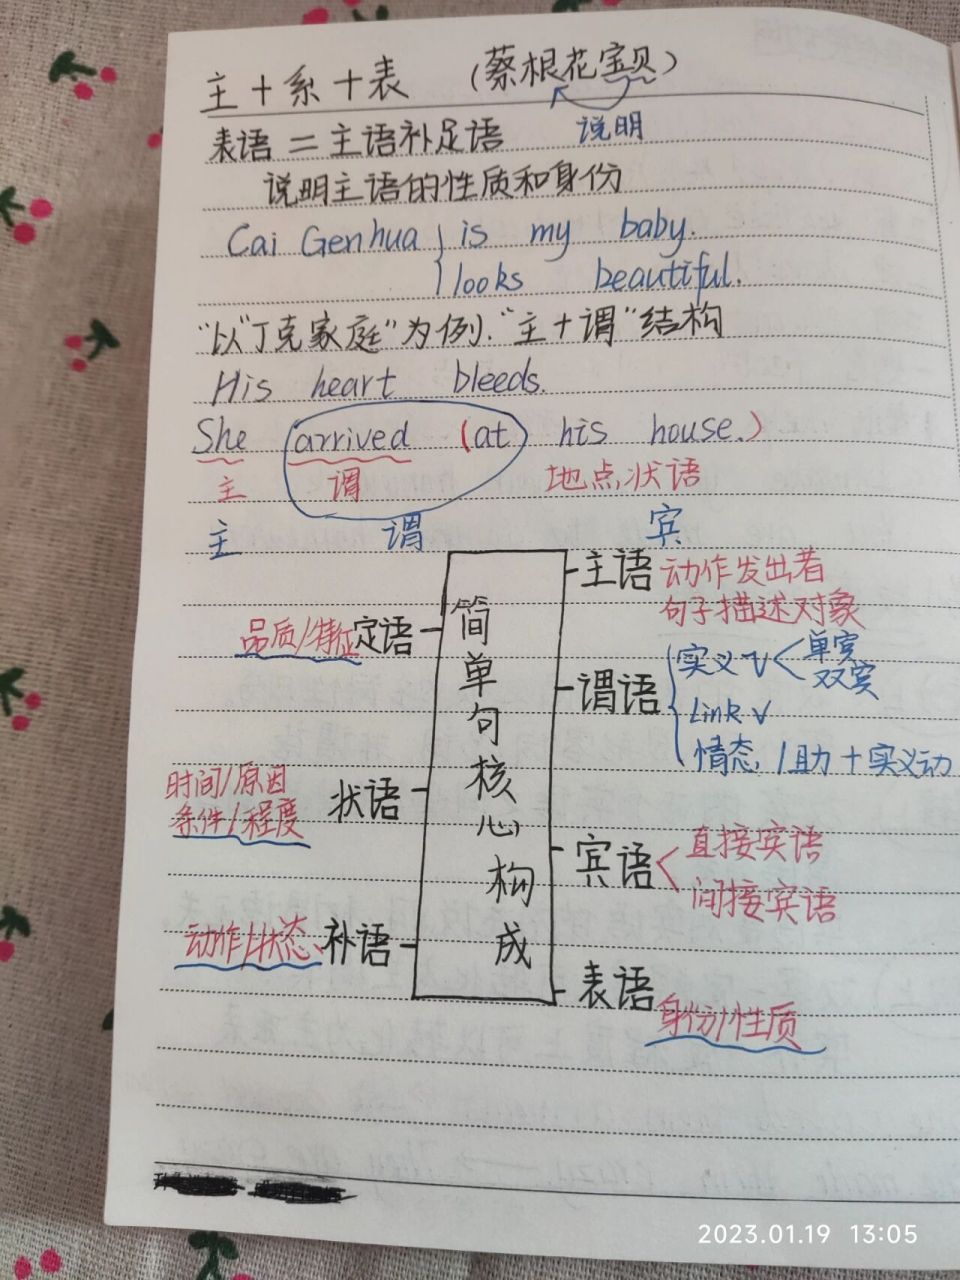 主+系+表 (蔡根花宝贝)
表语=主语补足语 说明
说明主语的性质和身份
Cai Genhua is my baby.
looks beautiful.
"以"丁克家庭"为例."主+谓"结构
His heart bleeds.
She arrived (at his house.)
主 谓 地点状语
主 谓 宾
简单句核心构成
主语 动作发出者
句子描述对象
谓语 实义V 单宾
双宾
Link V
情态/助+实义动
宾语 直接宾语
间接宾语
表语 身份/性质
品质/特征 定语
时间/原因 状语
条件/程度
动作/状态 补语
2023.01.19 13:05